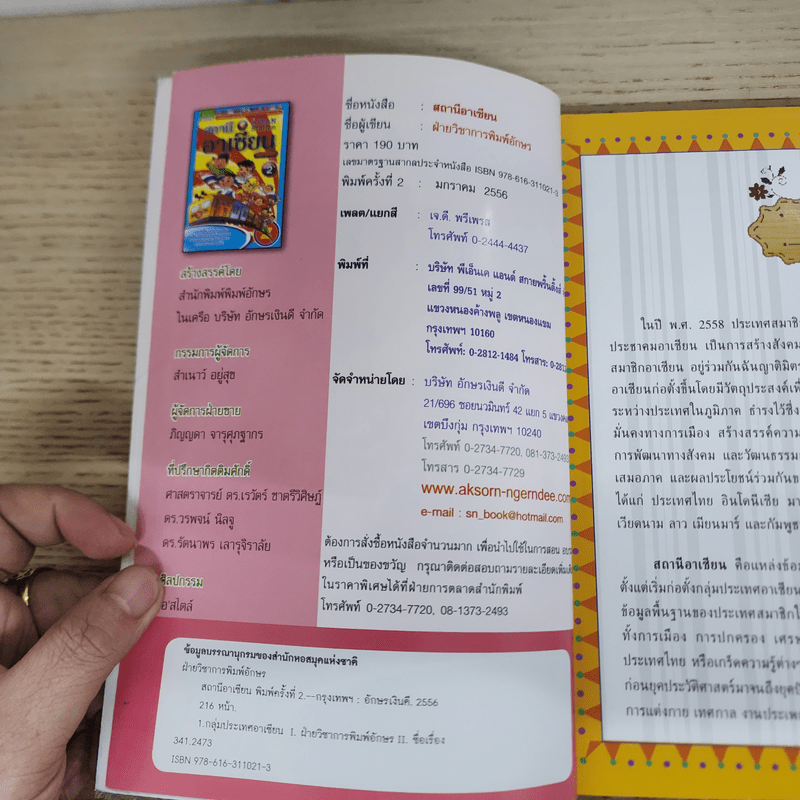 อาเซียน
สร้างสรรค์โดย
สำนักพิมพ์พิมพ์อักษร
ในเครือ บริษัท อักษรเงินดี จำกัด
กรรมการผู้จัดการ
สำเนาว์ อยู่สุข
ผู้จัดการฝ่ายขาย
ภิญญดา จารุศุภฐากร
ที่ปรึกษากิตติมศักดิ์
ศาสตราจารย์ ดร.เรวัตร์ ชาตรีวิศิษฏ์
ดร.วรพจน์ นิลจู
ดร.รัตนาพร เลารุจิราลัย
ศิลปกรรม
อ'สไตล์
ชื่อหนังสือ : สถานีอาเซียน
ชื่อผู้เขียน : ฝ่ายวิชาการพิมพ์อักษร
ราคา 190 บาท
เลขมาตรฐานสากลประจำหนังสือ ISBN 978-616-311021-3
พิมพ์ครั้งที่ 2 : มกราคม 2556
เพลต/แยกสี : เจ.ดี. พรีเพรส
โทรศัพท์ 0-2444-4437
พิมพ์ที่ : บริษัท พีเอ็นเค แอนด์ สกายพริ้นติ้งส์
เลขที่ 99/51 หมู่ 2
แขวงหนองค้างพลู เขตหนองแขม
กรุงเทพฯ 10160
โทรศัพท์: 0-2812-1484 โทรสาร: 0-2812
จัดจำหน่ายโดย : บริษัท อักษรเงินดี จำกัด
21/696 ซอยนวมินทร์ 42 แยก 5 แขวงคล
เขตบึงกุ่ม กรุงเทพฯ 10240
โทรศัพท์ 0-2734-7720, 081-373-2493
โทรสาร 0-2734-7729
www.aksorn-ngerndee.com
e-mail : sn_book@hotmail.com
ต้องการสั่งซื้อหนังสือจำนวนมาก เพื่อนำไปใช้ในการสอน อบร
หรือเป็นของขวัญ กรุณาติดต่อสอบถามรายละเอียดเพิ่มเติม
ในราคาพิเศษได้ที่ฝ่ายการตลาดสำนักพิมพ์
โทรศัพท์ 0-2734-7720, 08-1373-2493
ข้อมูลบรรณานุกรมของสำนักหอสมุดแห่งชาติ
ฝ่ายวิชาการพิมพ์อักษร
สถานีอาเซียน พิมพ์ครั้งที่ 2.--กรุงเทพฯ : อักษรเงินดี. 2556
216 หน้า.
1.กลุ่มประเทศอาเซียน I. ฝ่ายวิชาการพิมพ์อักษร II. ชื่อเรื่อง
341.2473
ISBN 978-616-311021-3
ในปี พ.ศ. 2558 ประเทศสมาชิ
ประชาคมอาเซียน เป็นการสร้างสังคม
สมาชิกอาเซียน อยู่ร่วมกันฉันญาติมิตร
อาเซียนก่อตั้งขึ้นโดยมีวัตถุประสงค์เพื่
ระหว่างประเทศในภูมิภาค ธำรงไว้ซึ่ง
มั่นคงทางการเมือง สร้างสรรค์ความ
การพัฒนาทางสังคม และวัฒนธรรม
เสมอภาค และผลประโยชน์ร่วมกันข
ได้แก่ ประเทศไทย อินโดนีเซีย มา
เวียดนาม ลาว เมียนมาร์ และกัมพูช
สถานีอาเซียน คือแหล่งข้อม
ตั้งแต่เริ่มก่อตั้งกลุ่มประเทศอาเซียน
ข้อมูลพื้นฐานของประเทศสมาชิกใ
ทั้งการเมือง การปกครอง เศรษ
ประเทศไทย หรือเกร็ดความรู้ต่างๆ
ก่อนยุคประวัติศาสตร์มาจนถึงยุคปั
การแต่งกาย เทศกาล งานประเพ